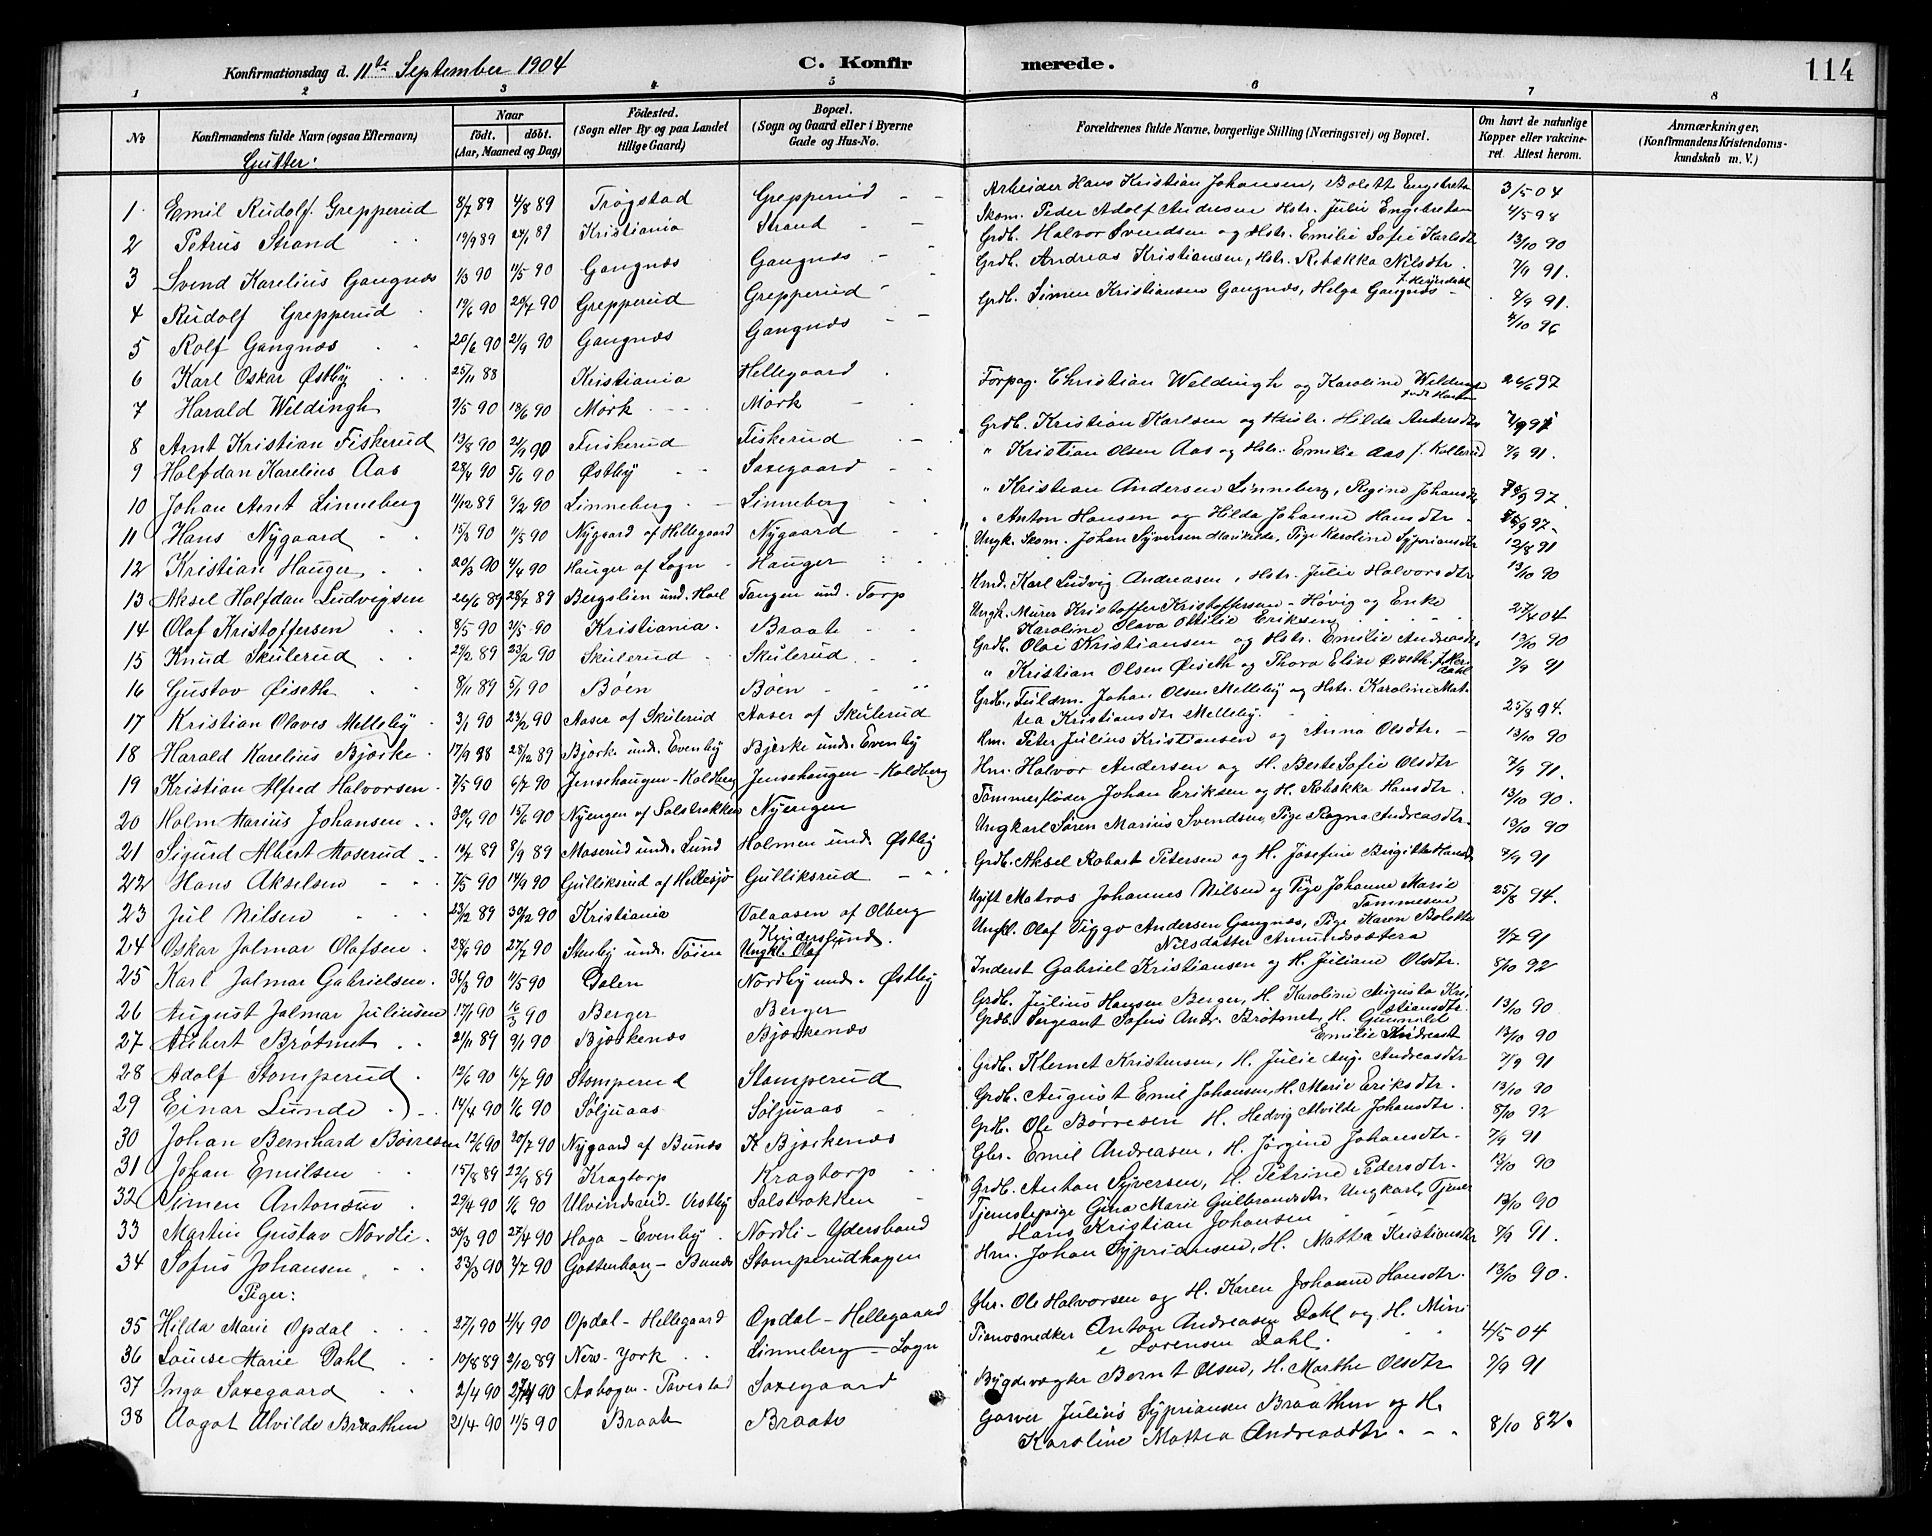 Konfirmationsdag d. 11te September 1904 C. Konfirmerede. 114
1 2 3 4 5 6 7 8
No
Konfirmandens fulde Navn (ogsaa Efternavn)
Naar
født. døbt.
(Aar, Maaned og Dag)
Fødested.
(Sogn eller By og paa Landet
tillige Gaard)
Bopæl.
(Sogn og Gaard eller i Byerne
Gade og Hus-No.
Forældrenes fulde Navne, borgerlige Stilling (Næringsvei) og Bopæl.
Om havt de naturlige
Kopper eller vakcine-
ret Attest herom.
Anmærkninger.
(Konfirmandens Kristendoms-
kundskab m. V.)
Gutter:
1 Emil Rudolf Grepperud 8/7 89 4/8 89 Trøgstad Grepperud Arbeider Hans Kristian Johansen, Bolette Engebretsn 3/5 04
2 Petrus Strand 19/9 89 Kristiania Strand Skom. Peder Adolf Andresen Hstr. Julie Engebretsen 4/5 98
3 Svend Karelius Gangnæs 1/3 90 11/5 90 Gangnæs Gangnæs Grdb. Halvor Svendsen og Hstr. Emilie Sofie Karlsdtr 13/10 90
4 Rudolf Grepperud 19/6 90 20/7 90 Grepperud Grepperud Grdb. Andreas Kristiansen, Hstr. Rebekka Nilsdtr. 7/9 91.
5 Rolf Gangnæs 20/6 90 21/9 90 Gangnæs Gangnæs Grdb. Simen Kristiansen Gangnæs, Helga Gangnæs 7/9 91.
6 Karl Oskar Østby 25/11 88 Kristiania Hellegaard 4/10 96
7 Harald Weldingh 7/5 90 19/6 90 Mørk Mørk Forpag. Christian Weldingh og Karoline 26/6 97
8 Arnt Kristian Fiskerud 13/8 90 21/9 90 Fiskerud Fiskerud Grdb. Kristian Karlsen og Hustr. Hilda Andersdtr
9 Halfdan Karelius Aas 28/4 90 5/6 90 Østby Saxegaard " Kristian Olsen Aas og Hstr. Emilie Aas f. Kollerud 7/9 91.
10 Johan Arnt Linneberg 11/12 89 2/2 90 Linneberg Linneberg " Kristian Andersen Linneberg, Regine Johansdtr
11 Hans Nygaard 15/3 90 11/5 90 Nygaard af Hellegaard Nygaard " Anton Hansen og Hilda Johanne Hansdtr
12 Kristian Hauger 20/3 90 4/4 90 Hauger af Sogn Hauger Ungk. Skom. Johan Syversen, Pige Karoline Sypriansdtr 12/8 91
13 Aksel Halfdan Ludvigsen 26/6 89 28/7 89 Bergslien und. Hoel Tangen und. Torp Hmd. Karl Ludvig Andreasen, Hstr. Julie Halvorsdtr 13/10 90
14 Olaf Kristoffersen 8/5 90 Kristiania Braate Ungk. Murer Kristoffer Kristoffersen - Høvig og Enke
Karoline Olava Ottilie Eriksen 27/4 04
15 Knud Skulerud 29/12 89 23/2 90 Skulerud Skulerud Grdb. Olai Kristiansen og Hstr. Emilie Andreasdtr 13/10 90
16 Gustav Øiseth 8/11 89 5/1 90 Bøen Bøen " Kristian Olsen Øiseth og Thora Elise Øiseth 7/9 91
17 Kristian Olaves Melleby 3/1 90 23/2 90 Aaser af Skulerud Aaser af Skulerud Grdb., Fuldm. Johan Olsen Melleby og Hstr. Karoline Mat-
tea Kristiansdtr Melleby. 25/8 94.
18 Harald Karelius Bjørke 17/9 88 28/12 89 Bjørke und. Evenby Bjerke und. Evenby Hm. Peter Julius Kristiansen og Anna Olsdtr. 13/10 90
19 Kristian Alfred Halvorsen 7/5 90 6/7 90 Jensehaugen-Koldberg Jensehaugen-Koldberg Hm. Halvor Andersen og H. Berte Sofie Olsdtr 7/9 91.
20 Holm Marius Johansen 30/4 90 15/6 90 Nyengen af Solstrøkken Nyengen Tømmerfløder Johan Eriksen og H. Rebekka Hansdtr. 13/10 90.
21 Sigurd Albert Moserud 14/7 89 8/9 89 Moserud und. Lund Holmen und. Østby Ungkarl Søren Marius Svendsen, Pige Ragna Andreasdtr. 13/10 90
22 Hans Akselsen 7/5 90 14/9 90 Gulliksrud af Hellesjø Gulliksrud Grdb. Aksel Robert Petersen og H. Josefine Birgitte Hansdtr 7/9 91
23 Jul Nilsen 23/12 89 30/12 90 Kristiania Valaasen af Olberg Ugift Matros Johannes Nilsen og Pige Johanne Marie
Tommesen 25/8 94.
24 Oskar Jalmar Olafsen 28/6 90 27/7 90 Stenby und. Tøien Ungkl. Olaf Ungkl. Olaf Viggo Andersen Gangnæs, Pige Karen Bolette
Nilsdatter Amundssætera 2/7 91
25 Karl Jalmar Gabrielsen 31/3 90 11/5 90 Dalen Nordby und. Østby Inderst Gabriel Kristiansen og H. Juliane Olsdtr. 8/10 92
26 August Jalmar Juliussen 17/1 90 16/3 90 Berger Berger Grdb. Julius Hansen Berger, H. Karoline Augusta Kri-
stiansdtr. 13/10 90
27 Aubert Brøtmet 21/11 89 9/1 90 Bjørkenæs Bjørkenæs Grdb. Sergeant Sofus Andr. Brøtmet, H. Gunnhild
Emilie Andreasdt 13/10 90
28 Adolf Stomperud 12/6 90 16/7 90 Stomperud Stomperud Grdb. Klemet Kristensen, H. Julie Aug. Andreasdtr 7/9 91
29 Einar Lunde 14/4 90 1/6 90 Søljuaas Søljuaas Grdb. August Emil Johansen, H. Marie Eriksdtr. 13/10 90
30 Johan Bernhard Børresen 12/6 90 20/7 90 Nygaard af Bunæs K Bjørkenæs Grdb. Ole Børresen H. Hedvig Alvilde Johansdtr. 8/10 92
31 Johan Emilsen 15/8 89 22/9 89 Kragtorp Kragtorp Gbr. Emil Andreasen, H. Jørgine Johansdtr. 7/9 91
32 Simen Antonsen 29/4 90 1/6 90 Ulvindsand-Vestby Solstrøkken Grdb. Anton Syversen, H. Petrine Pedersdtr. 13/10 90
33 Martin Gustav Nordli 30/3 90 27/4 90 Haga - Evenby Nordli - Ydersbond Tjenstepige Gina Marie Gulbrandsdtr, Ungkarl, Tjener
Hans Kristian Johansen 13/10 90
34 Sofus Johansen 23/3 90 4/7 90 Gottenborg - Bunæs Stomperudhagen Hm. Johan Syprianssen, H. Mattea Kristiansdtr 7/9 91.
Piger:
35 Hilda Marie Opdal 27/1 90 4/4 90 Opdal - Hellegaard Opdal - Hellegaard Gbr. Ole Halvorsen og H. Karen Johanne Hansdtr. 13/10 90.
36 Louise Marie Dahl 19/8 89 2/12 89 New-York Linneberg - Sogn Pianosnedker Anton Andreasen Dahl og H. Mini
e Sørensen Dahl. 4/5 04
37 Inga Saxegaard 2/4 90 27/4 90 Aabogen-Tavestad Saxegaard Bygdevægter Bernt Olsen, H. Marthe Olsdtr 7/9 91
38 Aagot Alvilde Braathen 21/4 90 11/5 90 Braate Braate Garver Julius Sypriansen Braathen og H.
Karoline Mattea Andreasdtr. 8/10 82.